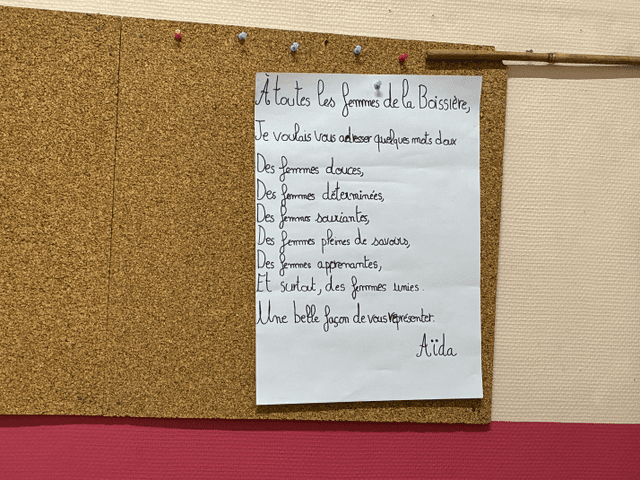 À toutes les femmes de la Boissière,
Je voulais vous adresser quelques mots doux
Des femmes douces,
Des femmes déterminées,
Des femmes souriantes,
Des femmes pleines de savoirs,
Des femmes apprenantes,
Et surtout, des femmes unies.
Une belle façon de vous représenter.
Aïda